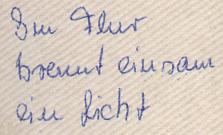 Im Flur
brennt einsam
ein Licht